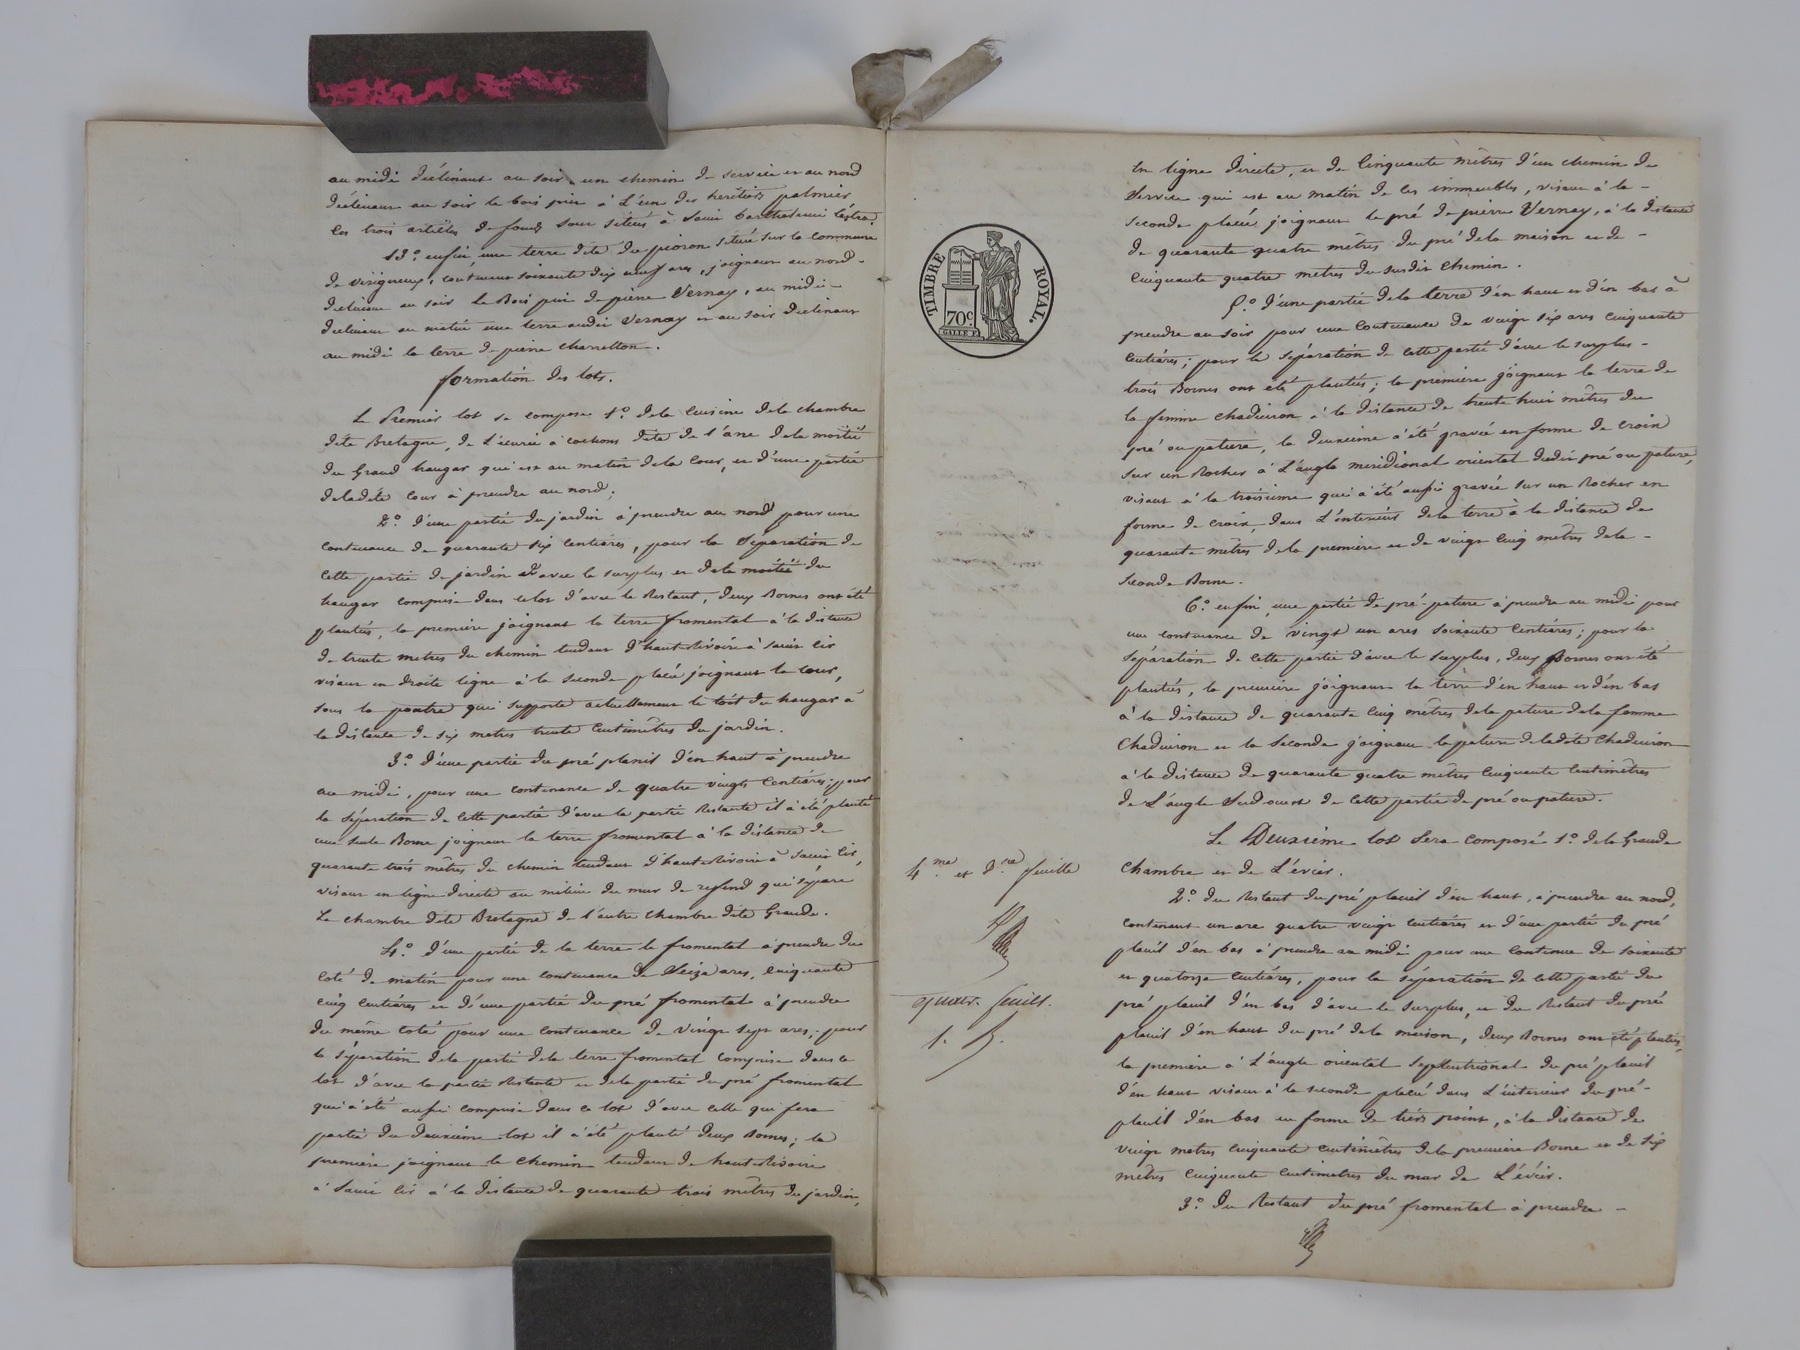 au midi déclinant au soir un chemin de service et au nord
déclinant au soir le bois pin à l'un des heritiers palmier
les trois articles de fonds sont situés à Saint barthelemi léstra
13.° enfin, une terre dite du pioron située sur la commune
de virigneux, contenant soixante dix neuf ares, joignant au nord-
declinant au soir le Bois pin de pierre Vernay, au midi-
declinant au matin une terre audit Vernay et au soir declinant
au midi la terre de pierre charretton.
formation des lots.
Le Premier lot se compose 1.° de la Cuisine de la chambre
dite Bretagne, de l'écurie à cochons dite de l'ane de la moitié
du Grand hangar qui est au matin de la Cour, et d'une partie
de ladite cour à prendre au nord;
2.° d'une partie du jardin à prendre au nord pour une
contenance de quarante six centiares, pour la Séparation de
cette partie de jardin avec le surplus et de la moitié du
hangar comprise dans ce lot d'avec le Restant, deux Bornes ont été
plantées, la première joignant la terre fromental à la distance
de trente metres du chemin tendant d'haut-Rivoire à saint Cir
visant en droite ligne à la seconde placée joignant la cour,
sous la poutre qui supporte actuellement le toit du hangar à
la distance de six metres trente Centimêtres du jardin.
3.° d'une partie du pré planit d'en haut à prendre
au midi, pour une contenance de quatre vingts Centiares; pour
la séparation de cette partie d'avec la partie Restante il a été planté
une seule Borne joignant la terre fromental à la distance de
quarante trois mêtres du chemin tendant d'haut-Rivoire à Saint Cir,
visant en ligne directe au milieu du mur de refend qui sépare
la chambre dite Bretagne de l'autre chambre dite Grande.
4.° d'une partie de la terre le fromental à prendre du
coté de matin pour une contenance de Seize ares, cinquante
cinq centiares et d'une partie du pré fromental à prendre
du même coté pour une contenance de vingt sept ares; pour
la séparation de la partie de la terre fromental comprise dans ce
lot d'avec la partie Restante et de la partie du pré fromental
qui a été aussi comprise dans ce lot d'avec celle qui fera
partie du deuxième lot il a été planté deux Bornes; la
première joignant le chemin tendant de haut-Rivoire
à Saint Cir à la distance de quarante trois mêtres du jardin,
TIMBRE ROYAL.
70c
4.me et d.re feuille
quatr. feuill.
en ligne directe, et de Cinquante mêtres d'un chemin de
Service qui est au matin de ces immeubles, visant à la-
seconde placée joignant le pré de pierre Vernay, à la distance
de quarante quatre mêtres du pré de la maison et de-
Cinquante quatre metres du susdit Chemin.
5.° d'une partie de la terre d'en haut et d'en bas à
prendre au soir pour une Contenance de vingt six ares cinquante
centiares; pour la séparation de cette partie d'avec le surplus-
trois Bornes ont été plantées; la première joignant la terre de
la femme chaduiron à la distance de trente huit mêtres du
pré ou pature, la deuxième a été gravée en forme de croix
sur un Rocher à l'angle méridional oriental dudit pré ou pature,
visant à la troisieme qui a été aussi gravée sur un Rocher en
forme de croix, dans l'intérieur de la terre à la distance de
quarante mêtres de la première et de vingt cinq mêtres de la-
seconde Borne.
6.° enfin, une partie de pré-pature à prendre au midi pour
une contenance de vingt un ares soixante centiares; pour la
séparation de cette partie d'avec le surplus, deux Bornes ont été
plantées, la première joignant la terre d'en haut et d'en bas
à la distance de quarante cinq mêtres de la pature de la femme
Chaduiron et la seconde joignant la pature de ladite Chaduiron
à la distance de quarante quatre mêtres cinquante centimêtres
de l'angle Sud-ouest de cette partie de pré ou pature.
Le Deuxième lot Sera composé 1.° de la Grande
Chambre et de l'évier.
2.° du Restant du pré planit d'en haut, à prendre au nord,
contenant un are quatre vingt centiares et d'une partie du pré
planit d'en bas à prendre au midi pour une contenue de soixante
et quatorze centiares, pour la séparation de cette partie du
pré planit d'en bas d'avec le surplus, et du Restant du pré
planit d'en haut du pré de la maison, deux Bornes ont été plantées,
la première à l'angle oriental septentrional du pré planit
d'en haut visant à la seconde placée dans l'intérieur du pré-
planit d'en bas en forme de tiers point, à la distance de
vingt metres cinquante centimêtres de la première Borne et de six
mètres cinquante centimetres du mur de l'évier.
3.° du Restant du pré fromental à prendre-